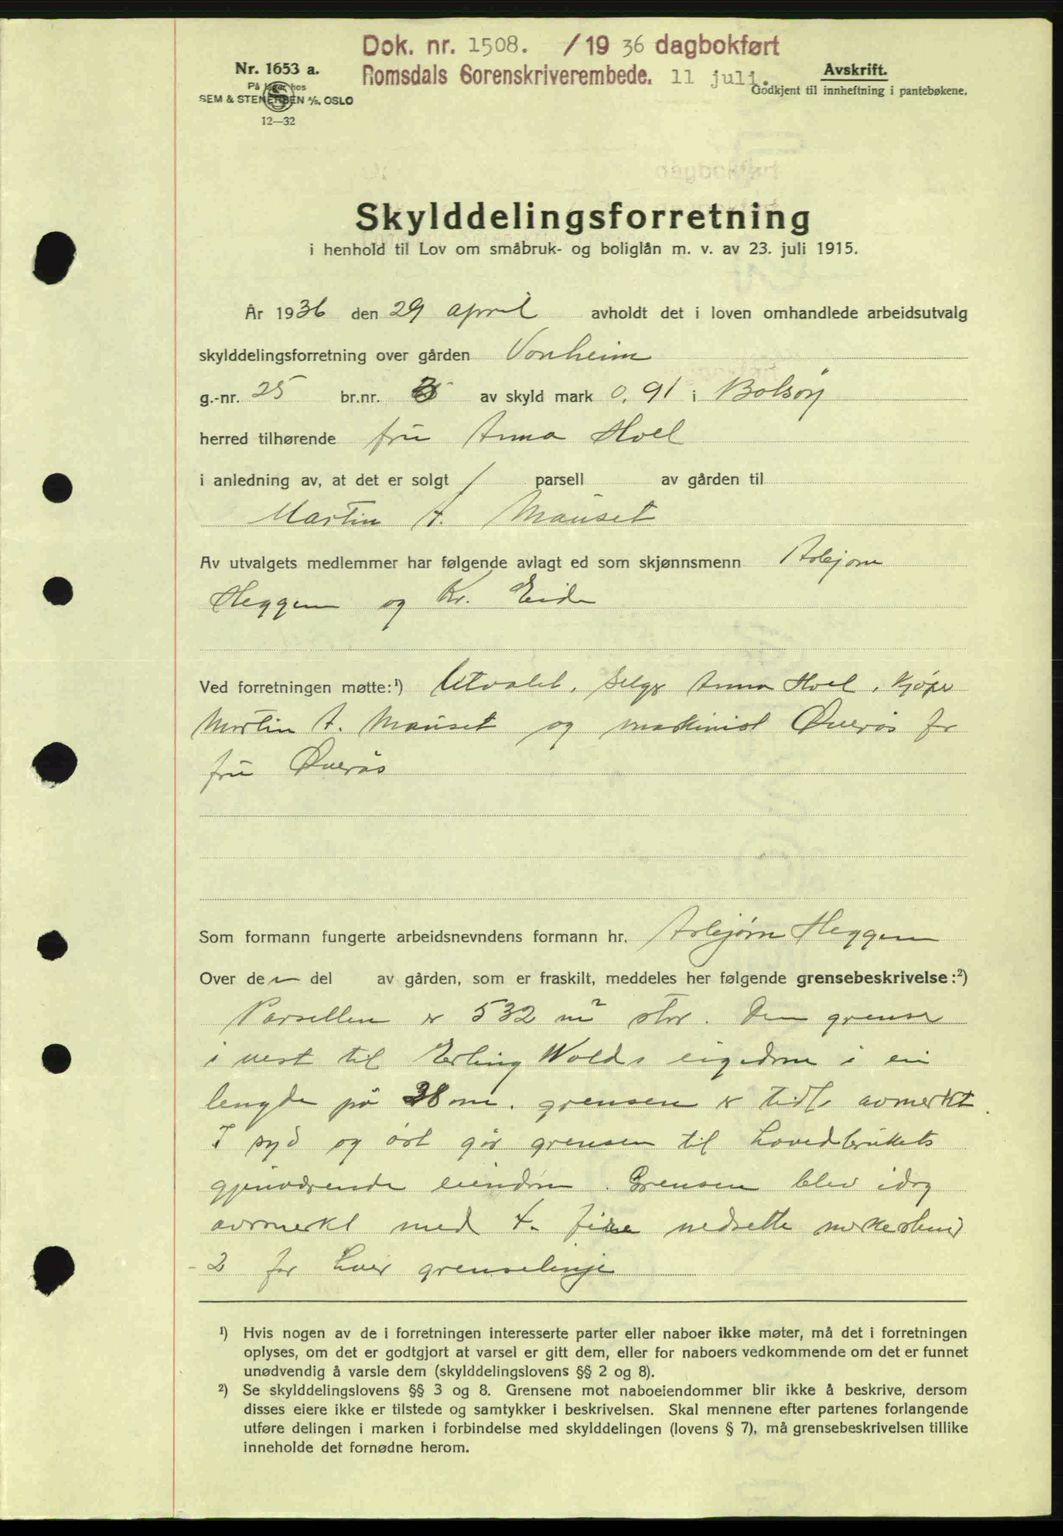 Dok. nr. 1508. /1936 dagbokført
Romsdals Sorenskriverembede. 11 juli.
Nr. 1653 a.
På lager hos
SEM & STENERSEN A/S, OSLO
12—32
Avskrift.
Godkjent til innheftning i pantebøkene.
Skylddelingsforretning
i henhold til Lov om småbruk- og boliglån m. v. av 23. juli 1915.
År 1936 den 29 april avholdt det i loven omhandlede arbeidsutvalg
skylddelingsforretning over gården Vonheim
g.-nr. 25 br.nr. av skyld mark 0,91 i Bolsøy
herred tilhørende fru Anna Hoel
i anledning av, at det er solgt 1 parsell av gården til
Martin A. Mauset
Av utvalgets medlemmer har følgende avlagt ed som skjønnsmenn Asbjørn
Heggem og Kr. Eide
Ved forretningen møtte:¹) Utvalet, Selger Anna Hoel, kjøper
Martin A. Mauset og maskinist Øverås for
fru Øverås
Som formann fungerte arbeidsnevndens formann hr. Asbjørn Heggem
Over den del av gården, som er fraskilt, meddeles her følgende grensebeskrivelse:²)
Parsellen er 532 m² stor. Den grenser
i vest til Erling Wolds eigedom i ei
lengde på 28 m. grensen er tidl. avmerkt.
I syd og øst går grensen til hovedbrukets
gjenværende eiendom. Grensen blev idag
avmerkt med 4. fire nedsette merkesteiner
- 2 for hver grenselinje
¹) Hvis nogen av de i forretningen interesserte parter eller naboer ikke møter, må det i forretningen
oplyses, om det er godtgjort at varsel er gitt dem, eller for naboers vedkommende om det er funnet
unødvendig å varsle dem (skylddelingslovens §§ 2 og 8).
²) Se skylddelingslovens §§ 3 og 8. Grensene mot naboeiendommer blir ikke å beskrive, dersom
disses eiere ikke er tilstede og samtykker i beskrivelsen. Skal mennene efter partenes forlangende
utføre delingen i marken i forbindelse med skylddelingen (lovens § 7), må grensebeskrivelsen tillike
inneholde det fornødne herom.